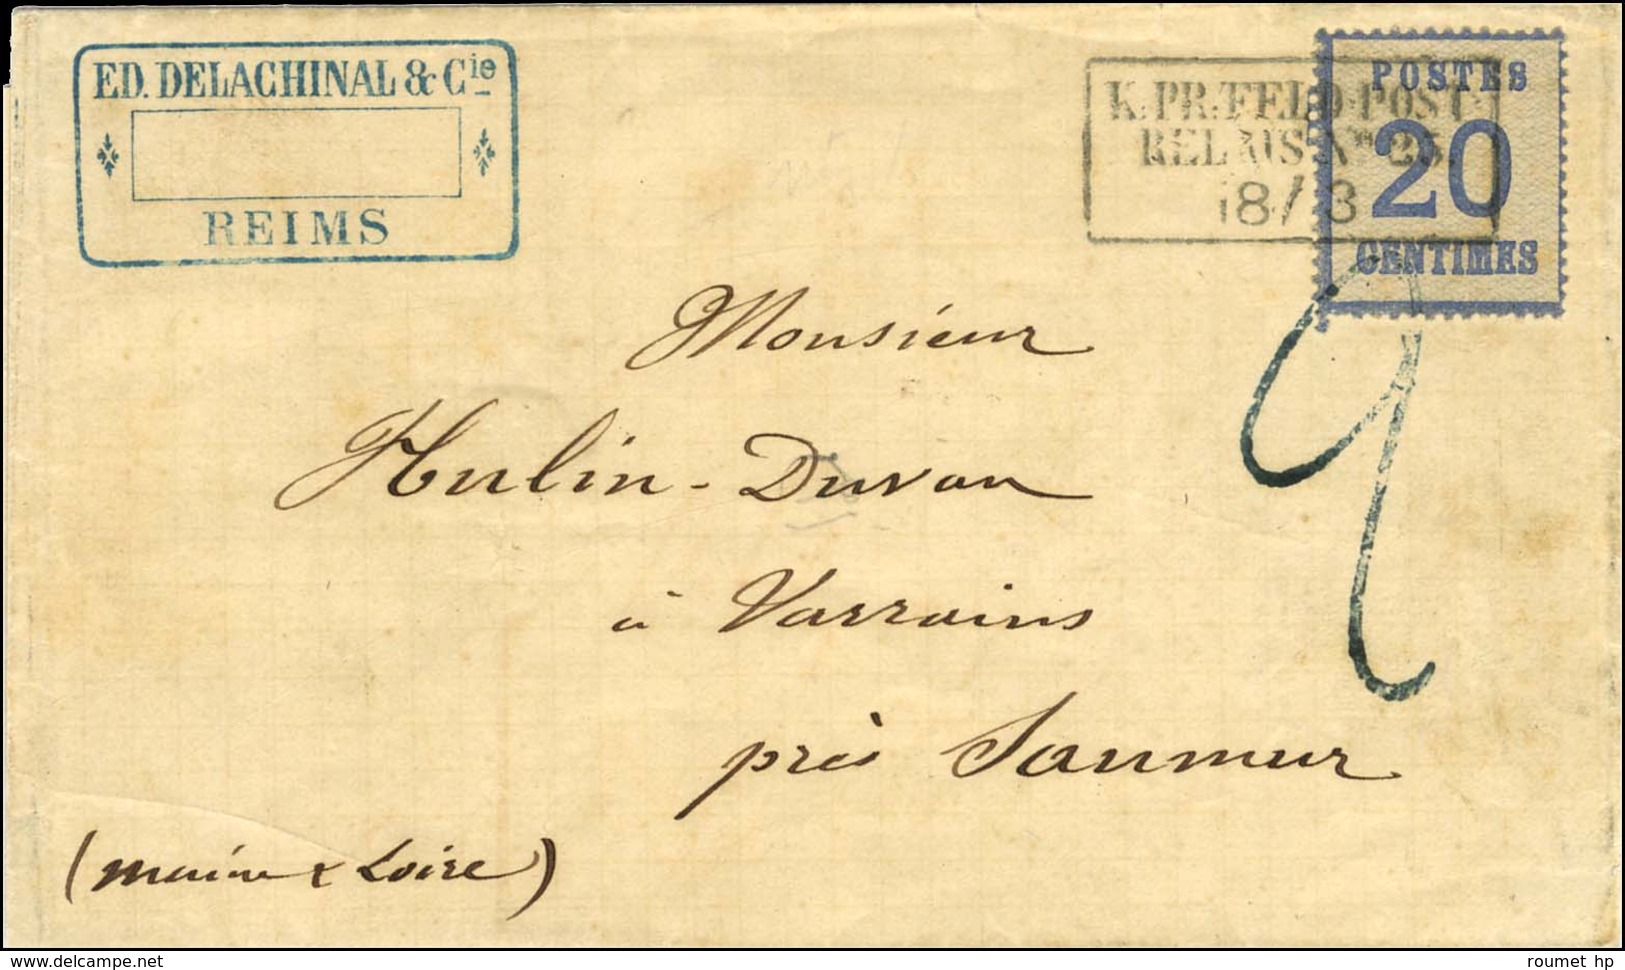 ED. DELACHINAL & Cie
REIMS
K. PR. FELD-POST
RELAIS No 25.
18/3
POSTES
20
CENTIMES
2
Monsieur
Hulin-Duvau
à Varrains
près Saumur
(Maine & Loire)
www.delcampe.net
roumet hp